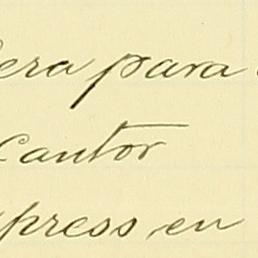 era para
cantor
press en